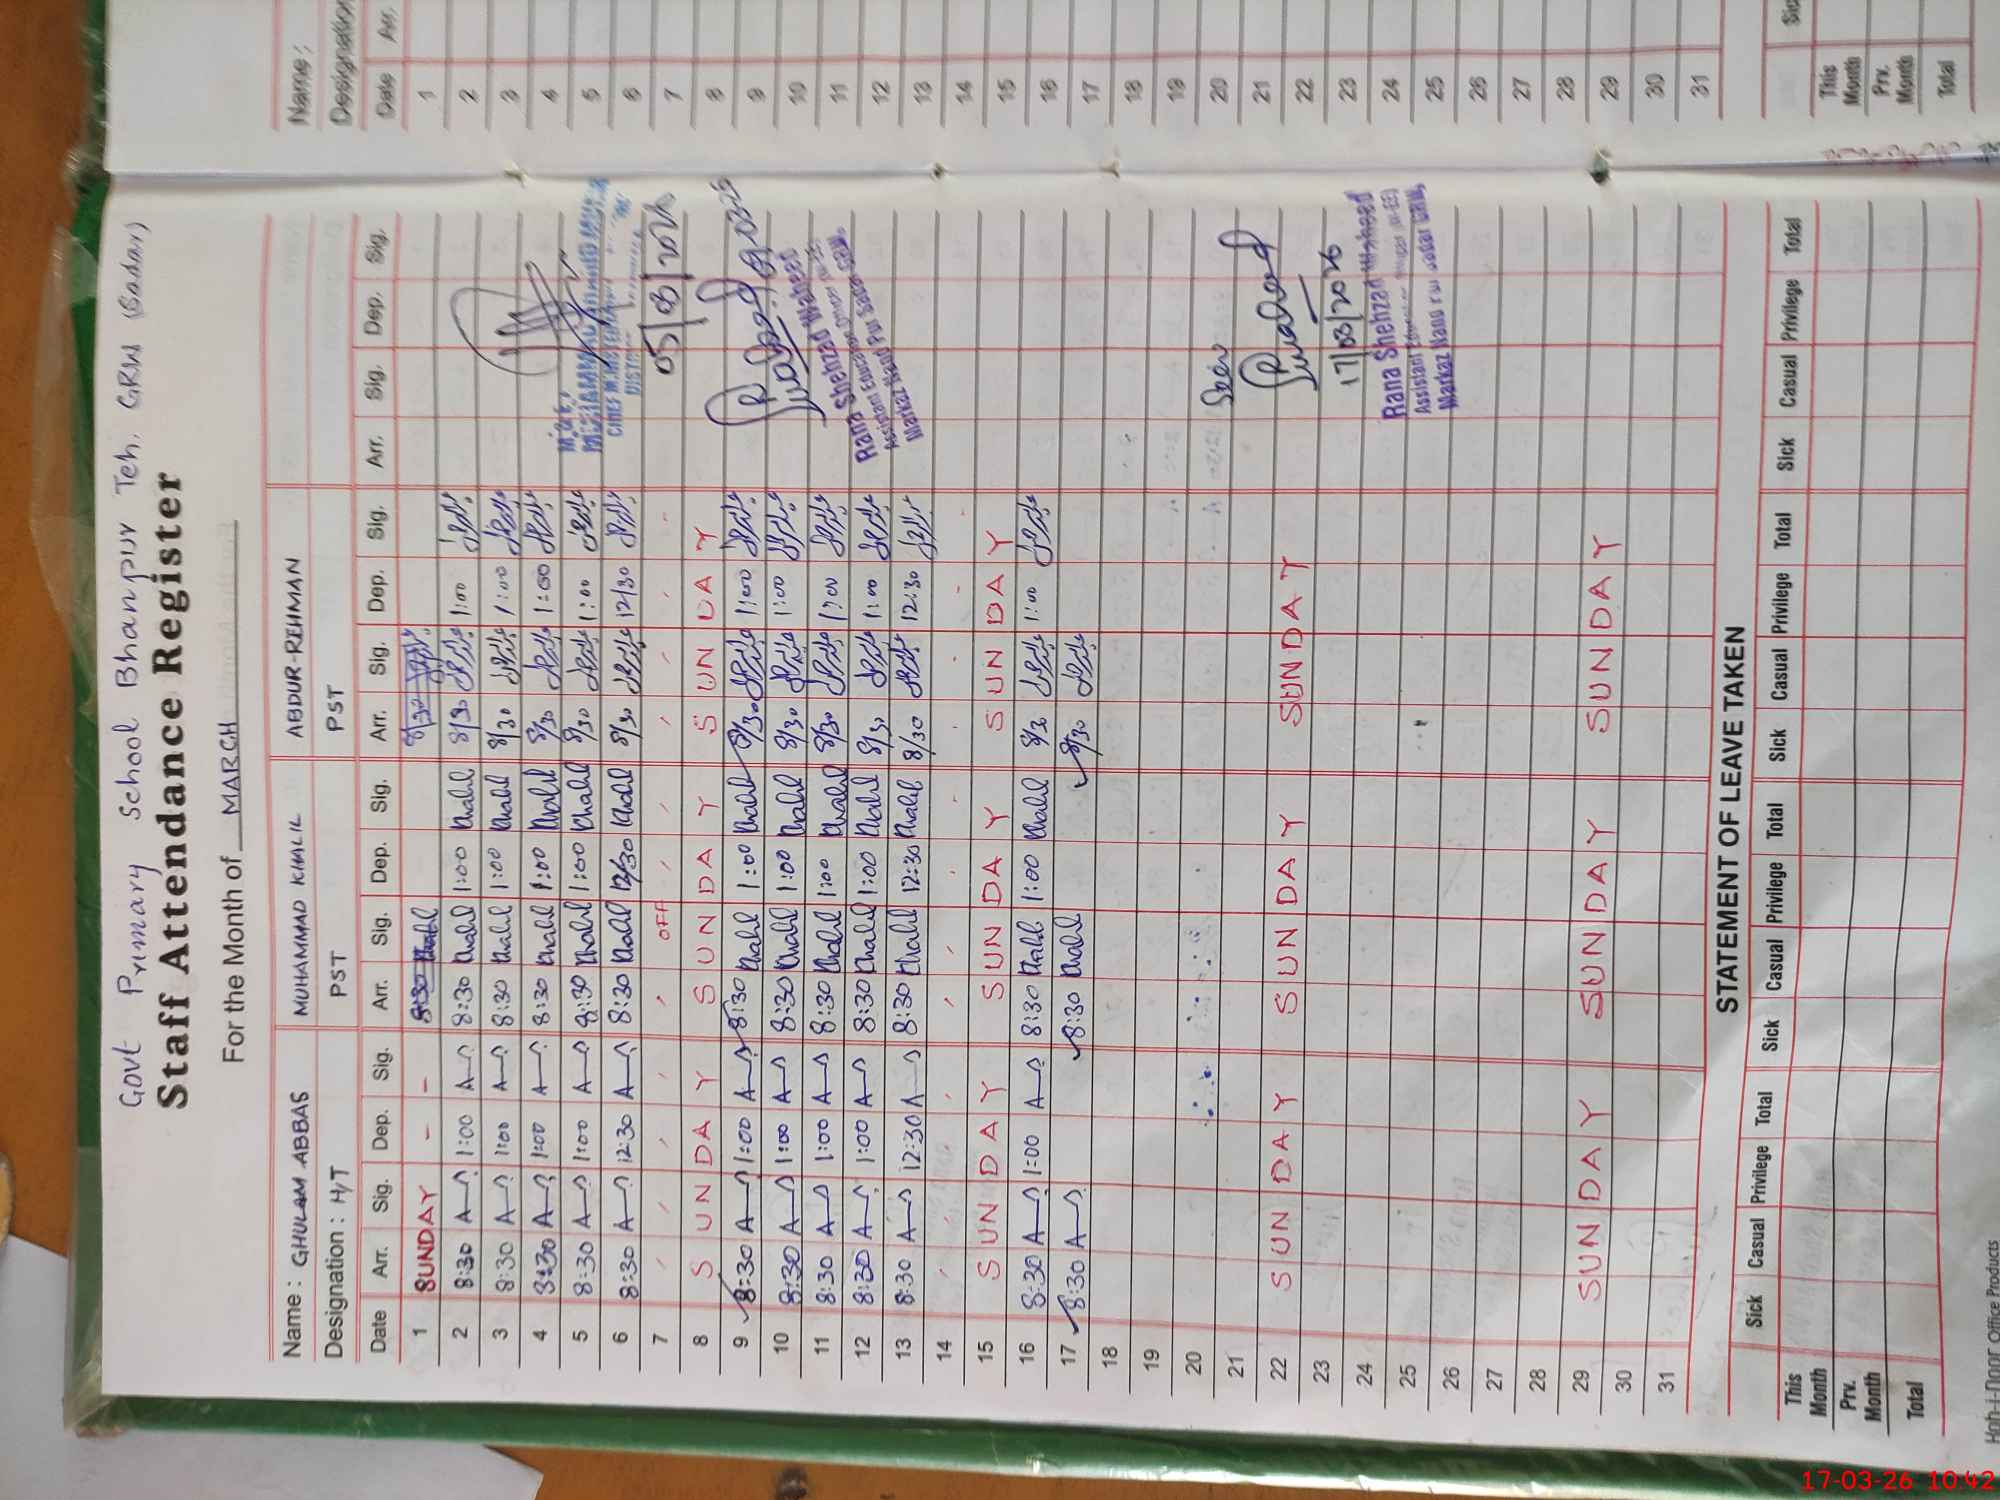 Govt Primary School Bhanpur Teh. GRW (Sadar)
Staff Attendance Register
For the Month of MARCH
Name : GHULAM ABBAS MUHAMMAD KHALIL ABDUR-REHMAN
Designation : H/T PST PST
Date Arr. Sig. Dep. Sig. Arr. Sig. Dep. Sig. Arr. Sig. Dep. Sig. Arr. Sig. Dep. Sig.
1 SUNDAY - - 8:30 Khalil 8/30
2 8:30 1:00 8:30 Khalil 1:00 Khalil 8/30 1:00
3 8:30 1:00 8:30 Khalil 1:00 Khalil 8/30 1:00
4 8:30 1:00 8:30 Khalil 1:00 Khalil 8/30 1:00
5 8:30 1:00 8:30 Khalil 1:00 Khalil 8/30 1:00
6 8:30 12:30 8:30 Khalil 12/30 Khalil 8/30 12/30
7 OFF
8 SUNDAY SUNDAY SUNDAY
9 8:30 1:00 8:30 Khalil 1:00 Khalil 8/30 1:00
10 8:30 1:00 8:30 Khalil 1:00 Khalil 8/30 1:00
11 8:30 1:00 8:30 Khalil 1:00 Khalil 8/30 1:00
12 8:30 1:00 8:30 Khalil 1:00 Khalil 8/30 1:00
13 8:30 12:30 8:30 Khalil 12:30 Khalil 8/30 12:30
14
15 SUNDAY SUNDAY SUNDAY
16 8:30 1:00 8:30 Khalil 1:00 Khalil 8/30 1:00
17 8:30 8:30 Khalil 8/30
18
19
20
21
22 SUNDAY SUNDAY SUNDAY
23
24
25
26
27
28
29 SUNDAY SUNDAY SUNDAY
30
31
05/03/2026
Rana Shehzad Waheed
Seen
17/03/2026
Rana Shehzad Waheed
STATEMENT OF LEAVE TAKEN
Sick Casual Privilege Total Sick Casual Privilege Total Sick Casual Privilege Total Sick Casual Privilege Total
This Month
Prv. Month
Total
Office Products
Name :
Designation
Date Arr.
1
2
3
4
5
6
7
8
9
10
11
12
13
14
15
16
17
18
19
20
21
22
23
24
25
26
27
28
29
30
31
Sic
This Month
Prv. Month
Total
17-03-26 10:42